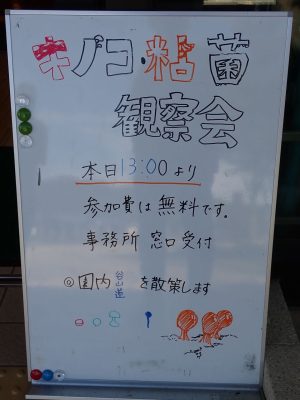 キノコ・粘菌
観察会
本日13:00より
参加費は無料です。
事務所 窓口受付
◎園内 を散策します